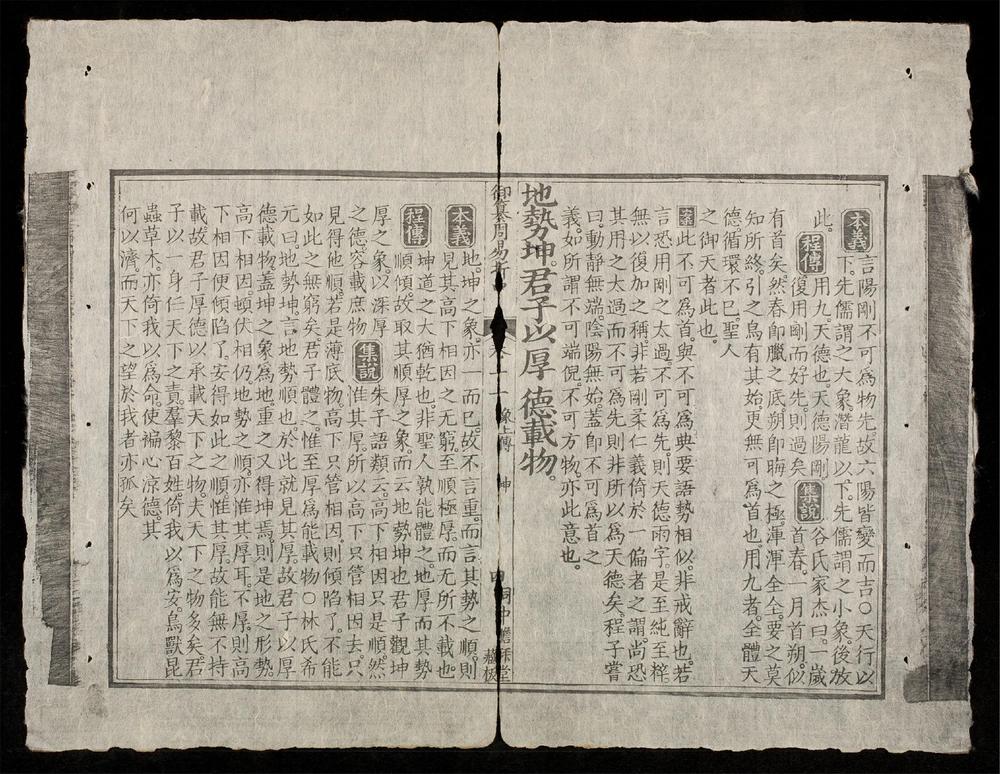 本義 言陽剛不可為物先故六陽皆變而吉○天行以
下。先儒謂之大象潛龍以下。先儒謂之小象。後放
此。程傳 用九天德也。天德陽剛 集說 谷氏家杰曰。一歲
復用剛而好先。則過矣 首春。一月首朔。似
有首矣。然春即臘之底朔即晦之極。渾渾全全要之莫
知所終。引之烏有其始。更無可為首也用九者。全體天
德。循環不已。聖人
之御天者此也。
案此不可為首。與不可為典要語勢相似。非戒辭也。若
言恐用剛之太過不可為先。則天德兩字。是至純至粹
無以復加之稱。非若剛柔仁義倚於一偏者之謂。尚恐
其用之太過而不可為先則非所以為天德矣。程子嘗
曰。動靜無端陰陽無始蓋即不可為首之
義。如所謂不可端倪。不可方物。亦此意也。
地勢坤。君子以厚德載物。
御纂周易折 卷十一 象上傳 坤 堂 藏板
本義 地。坤之象。亦一而已。故不言重。而言其勢之順則
見其高下相因之无窮。至順極厚。而无所不載也。
程傳 坤道之大猶乾也。非聖人孰能體之。地厚而其勢
順傾。故取其順厚之象。而云地勢坤也君子觀坤
厚之象。以深厚 集說 朱子語類云。高下相因只是順。然
之德。容載庶物。 惟其厚。所以高下只管相因去只
見得他順。若是薄底物高下只管相因。則傾陷了。不能
如此之無窮矣。君子體之。惟至厚為能載物○林氏希
元曰地勢坤。言地勢順也。於此就見其厚。故君子以厚
德載物。蓋坤之象為地。重之又得坤焉。則是地之形勢。
高下相因頓伏相仍。地勢之順。亦惟其厚耳。不厚。則高
下相因便傾陷了。安得如此之順。惟其厚。故能無不持
載故君子厚德。以承載天下之物。夫天下之物多矣。君
子以一身任天下之責。羣黎百姓。倚我以為安。鳥獸昆
蟲草木。亦倚我以為命。使褊心涼德。其
何以濟。而天下之望於我者亦孤矣